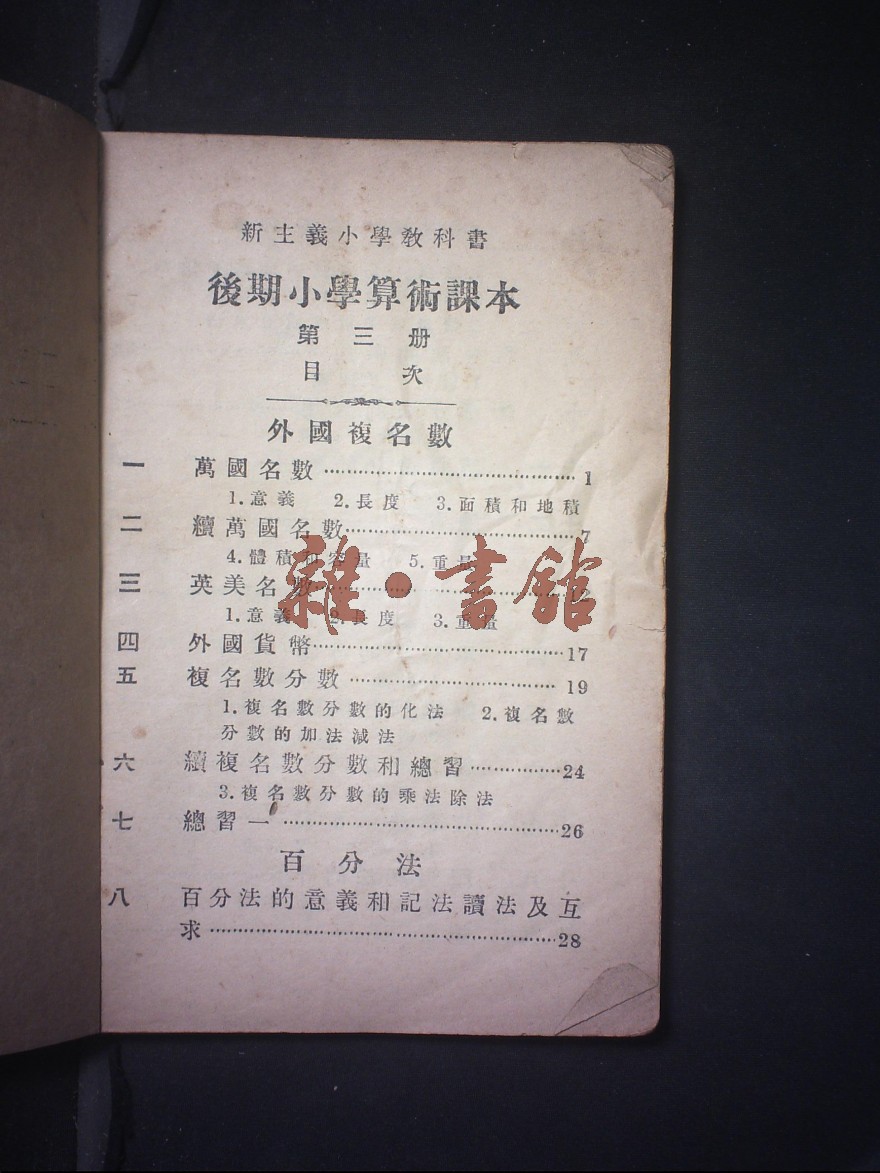 新主義小學教科書
後期小學算術課本
第三册
目次
外國複名數
一 萬國名數……………………………1
1.意義 2.長度 3.面積和地積
二 續萬國名數……………………………7
4.體積和容量 5.重量
三 英美名數……………………………2
1.意義 2.長度 3.重量
四 外國貨幣……………………………17
五 複名數分數……………………………19
1.複名數分數的化法 2.複名數
分數的加法減法
六 續複名數分數和總習……………24
3.複名數分數的乘法除法
七 總習一……………………………26
百分法
八 百分法的意義和記法讀法及互
求……………………………28
雜·書舘